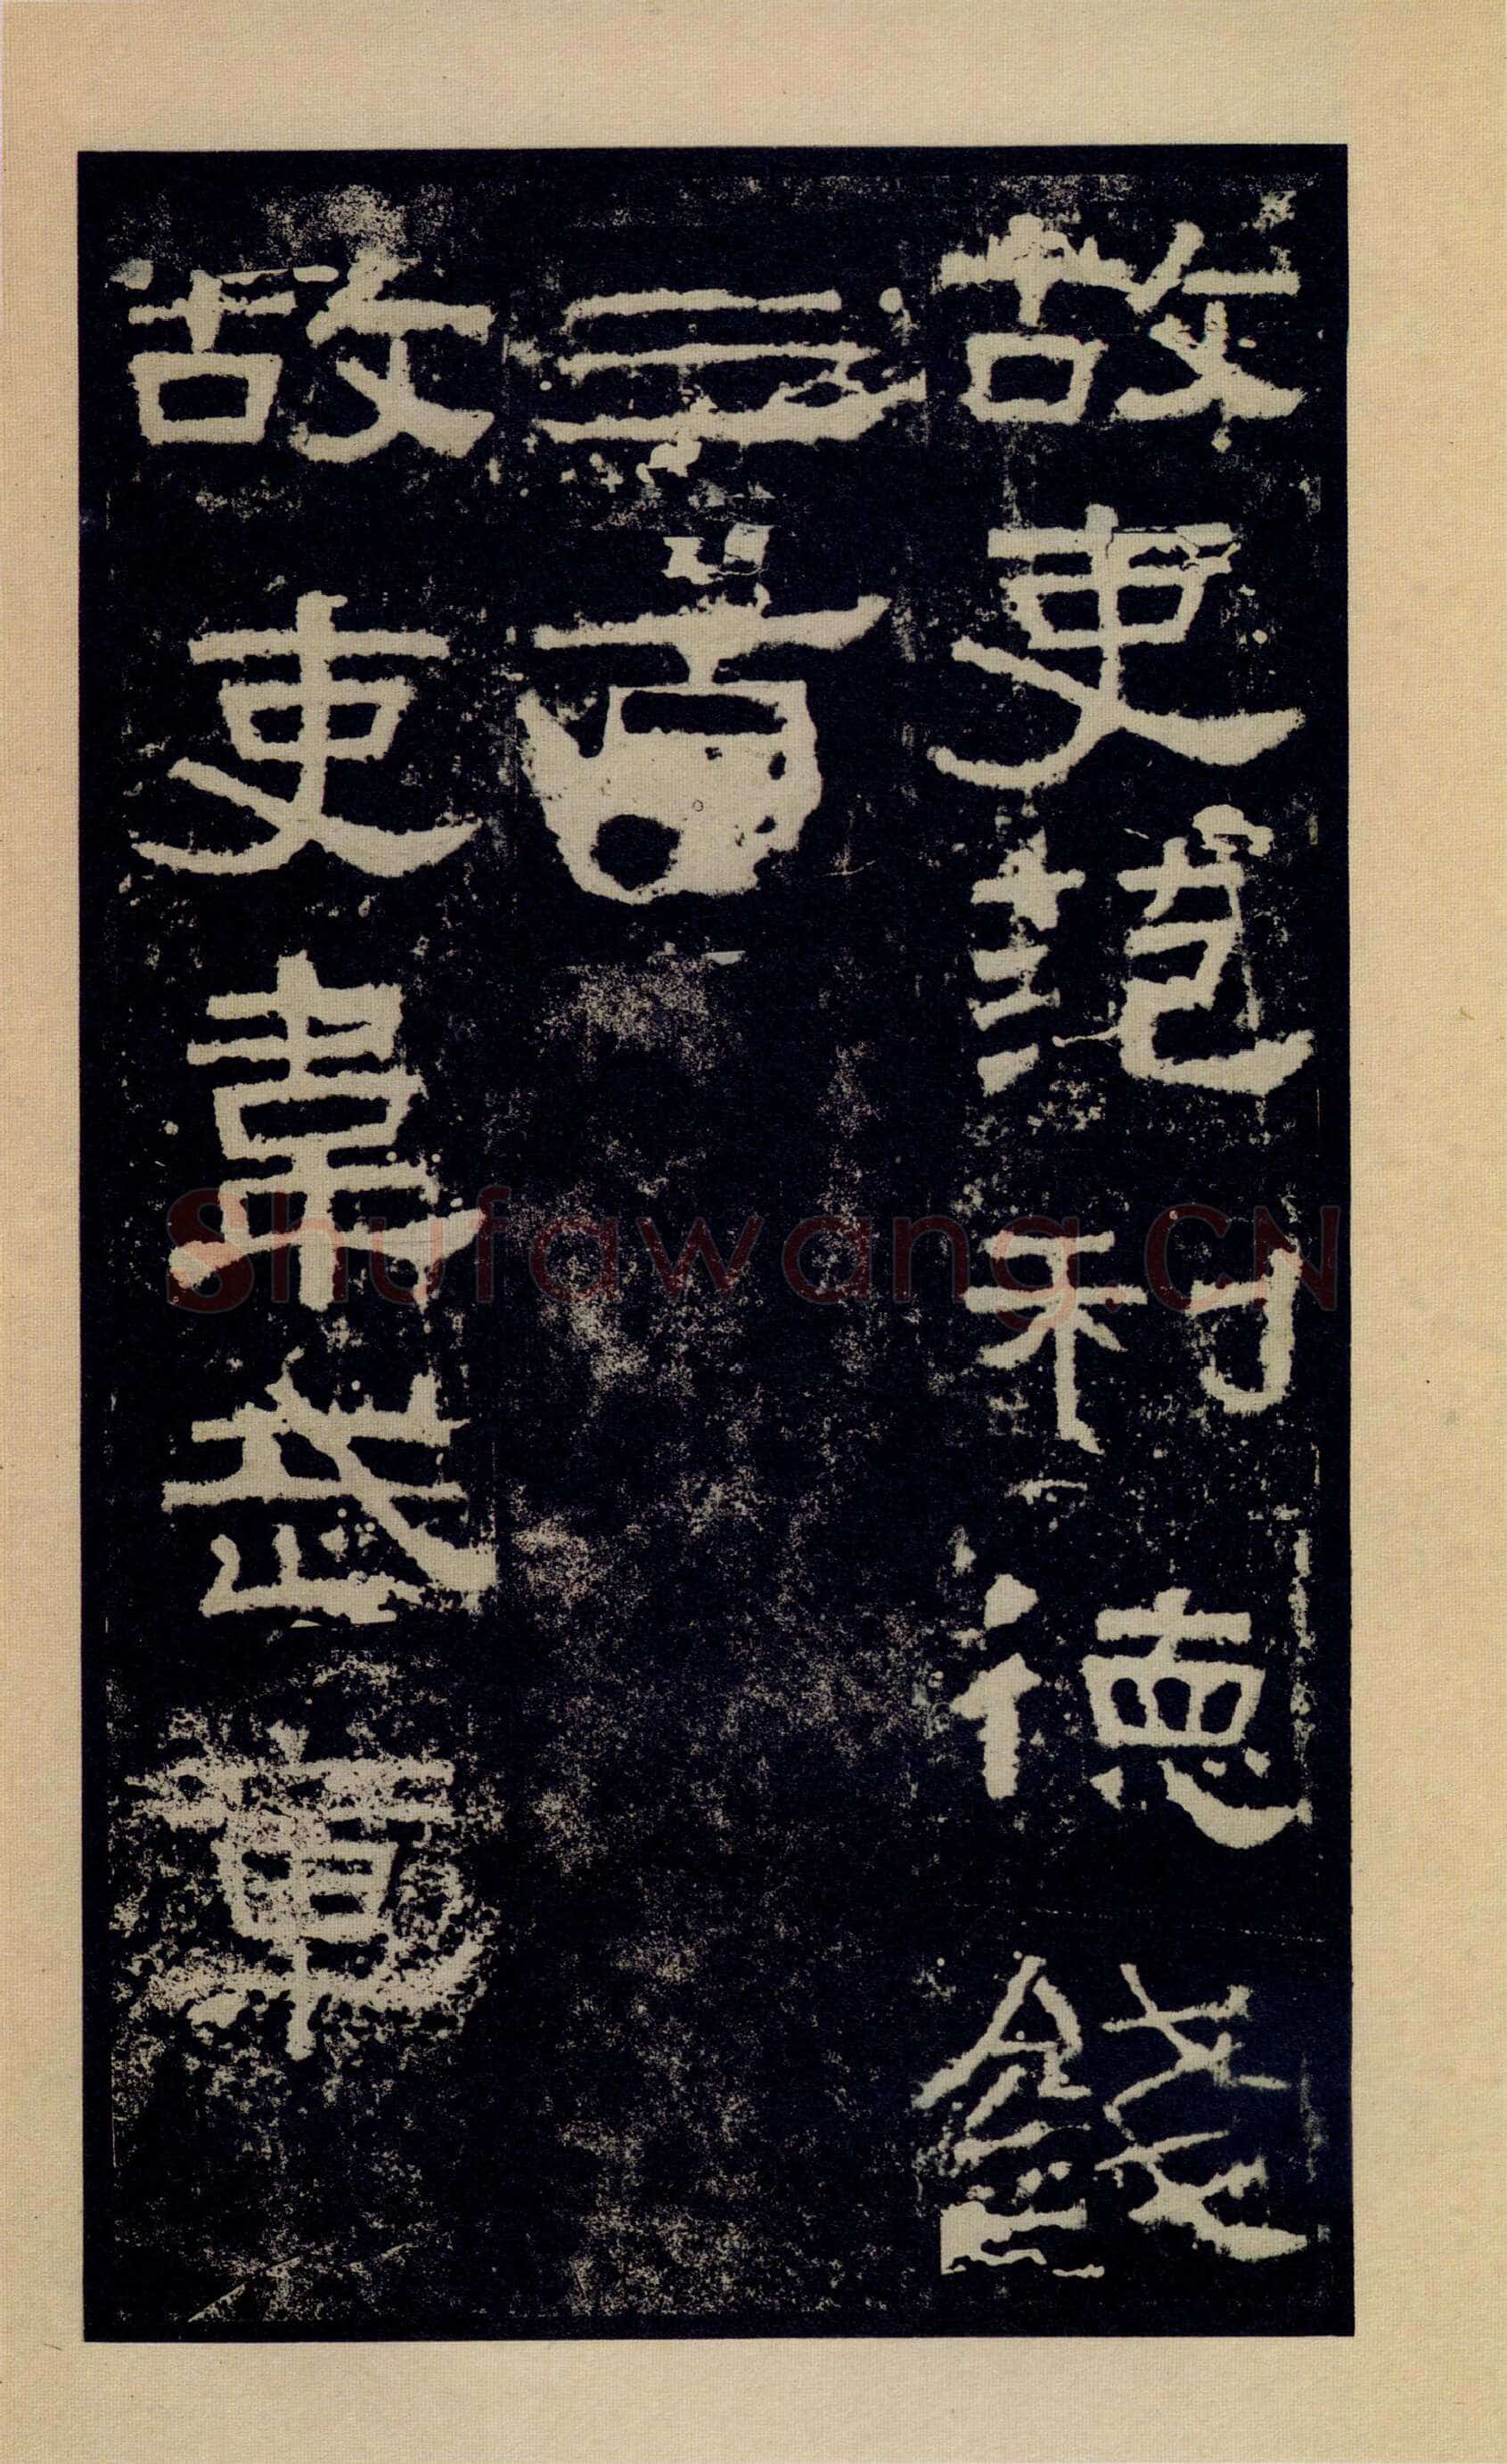 故吏范利德錢
三百
故吏韋武章
Shufawang.CN